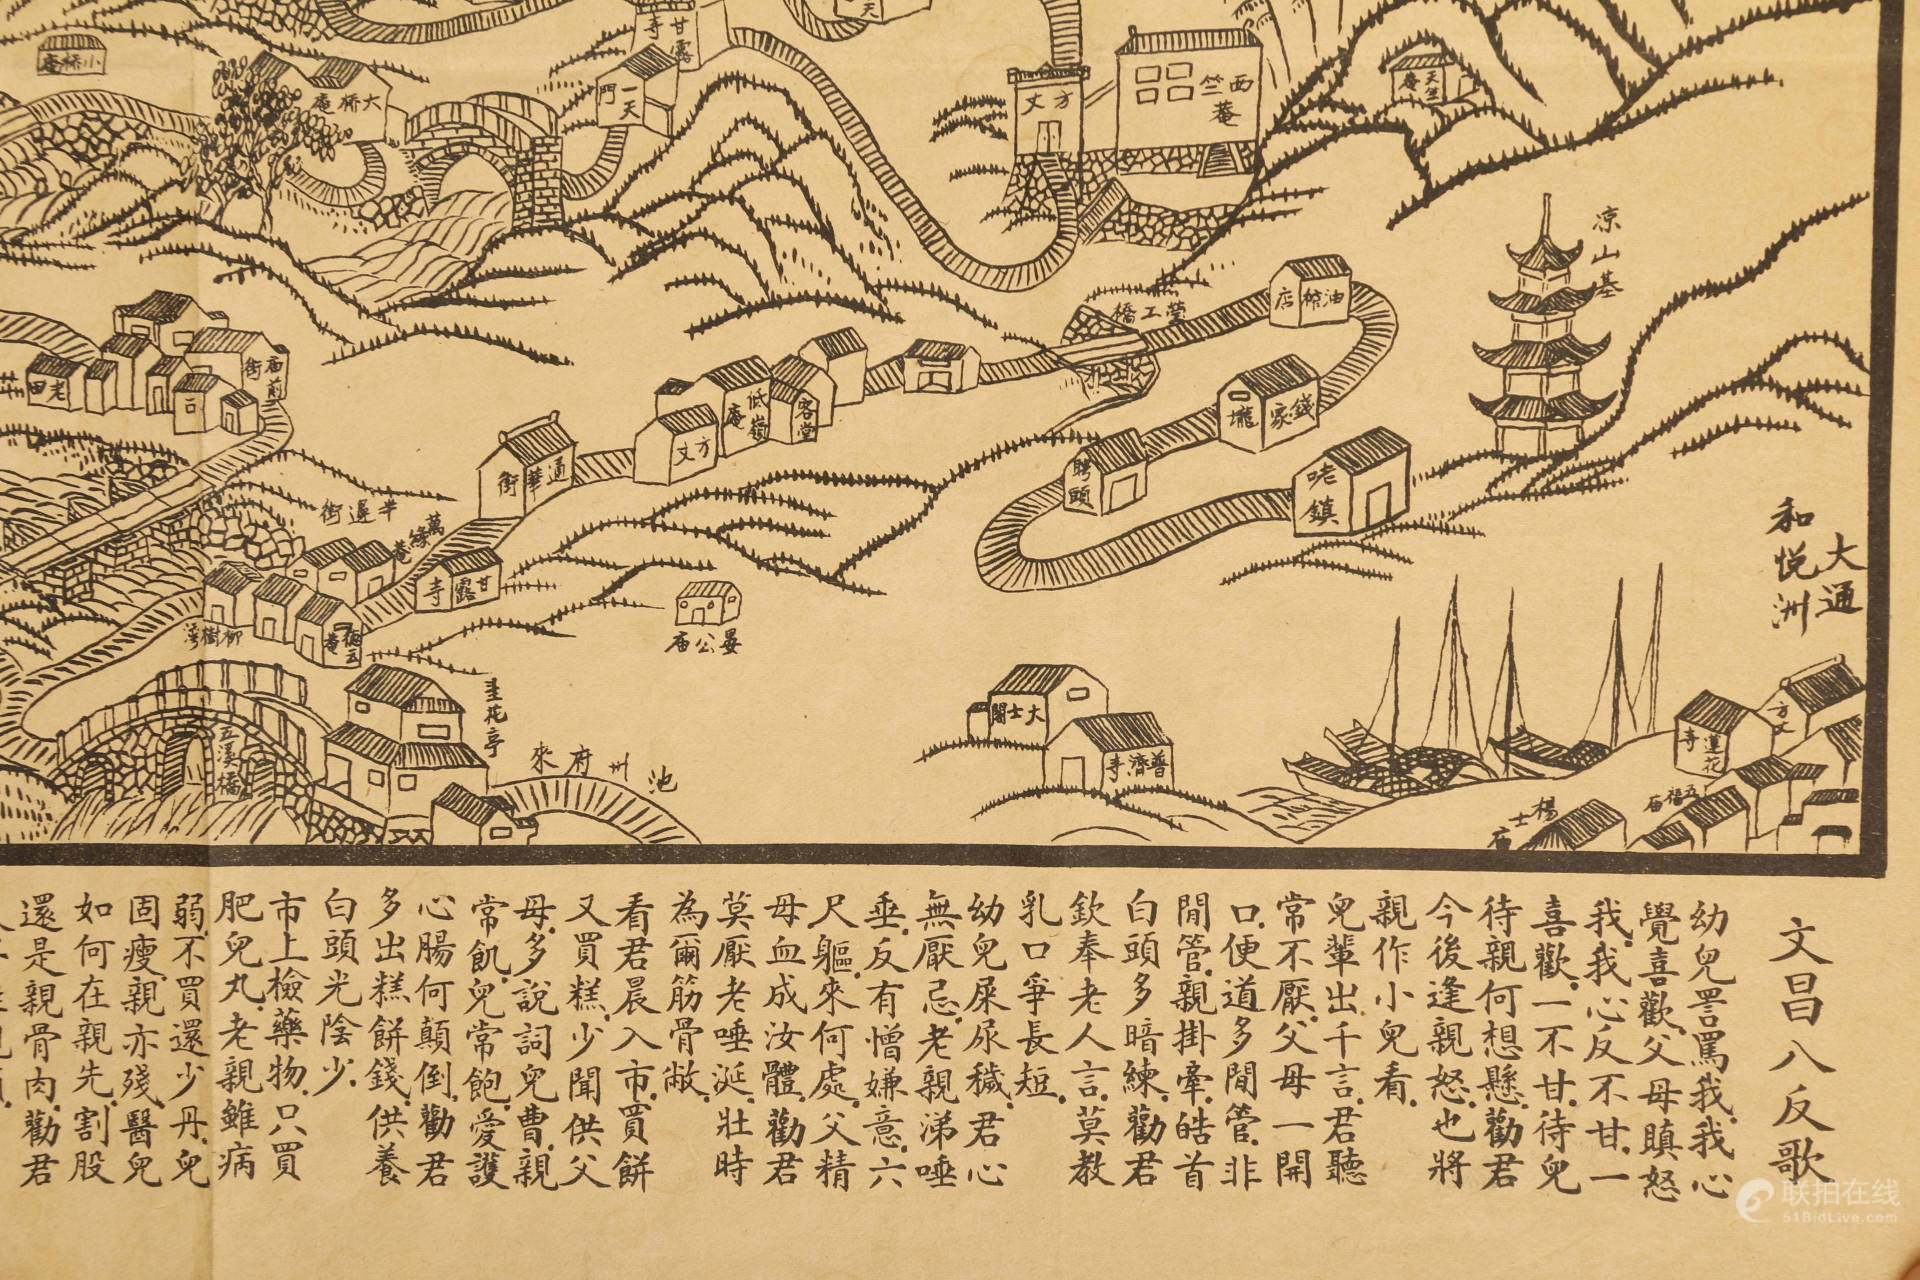 小橋庵
大橋庵
甘露寺
一天門
天
方丈
西竺菴
天竺庵
涼山基
油榨店
瑩工橋
錢家壠
聘頭
咾鎮
客堂
低嶺庵
方丈
通華街
庙前街
老田
半邊街
萬緣菴
甘露寺
柳樹灣
晏公庙
圭花亭
五溪橋
池州府來
大士閣
普濟寺
大通
和悦洲
方丈
蓮花寺
五福庙
楊士庙
文昌八反歌
幼兒詈罵我我心
覺喜歡父母瞋怒
我我心反不甘一
喜歡一不甘待兒
待親何想懸勸君
今後逢親怒也將
親作小兒看
兒輩出千言君聽
常不厭父母一開
口便道多閒管非
閒管親掛牽皓首
白頭多暗練勸君
欽奉老人言莫教
乳口爭長短
幼兒屎尿穢君心
無厭忌老親涕唾
垂反有憎嫌意六
尺軀來何處父精
母血成汝體勸君
莫厭老唾涎壯時
為爾筋骨敝
看君晨入市買餅
又買糕少聞供父
母多說詞兒曹親
常飢兒常飽愛護
心腸何顛倒勸君
多出糕餅錢供養
白頭光陰少
市上檢藥物只買
肥兒丸老親雖病
弱不買還少丹兒
固瘦親亦殘醫兒
如何在親先割股
還是親骨肉勸君
联拍在线
51BidLive.com